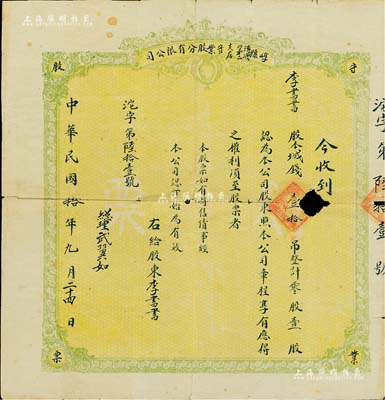 上海陽明拍賣
股
守
業
票
業股分有限公司
今收到
李書書
股本城錢壹拾吊整計零股壹股
認為本公司股東照本公司章程享有應得
之權利須至股票者
本股票如有售情事須
本公司認可始為有效
右給股東李書書
沱字第陸拾壹號
經理武翼如
中華民國拾年九月二十四日
沱字第陸拾壹號
票
上海陽明拍賣